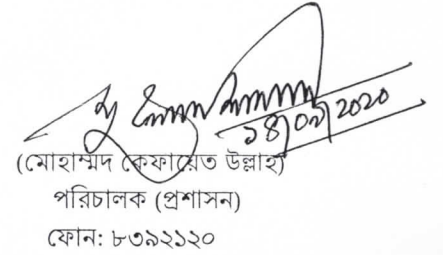 ১৪/০৯/2020
(মোহাম্মদ কেফায়েত উল্লাহ)
পরিচালক (প্রশাসন)
ফোন: ৮৩৯২১২০